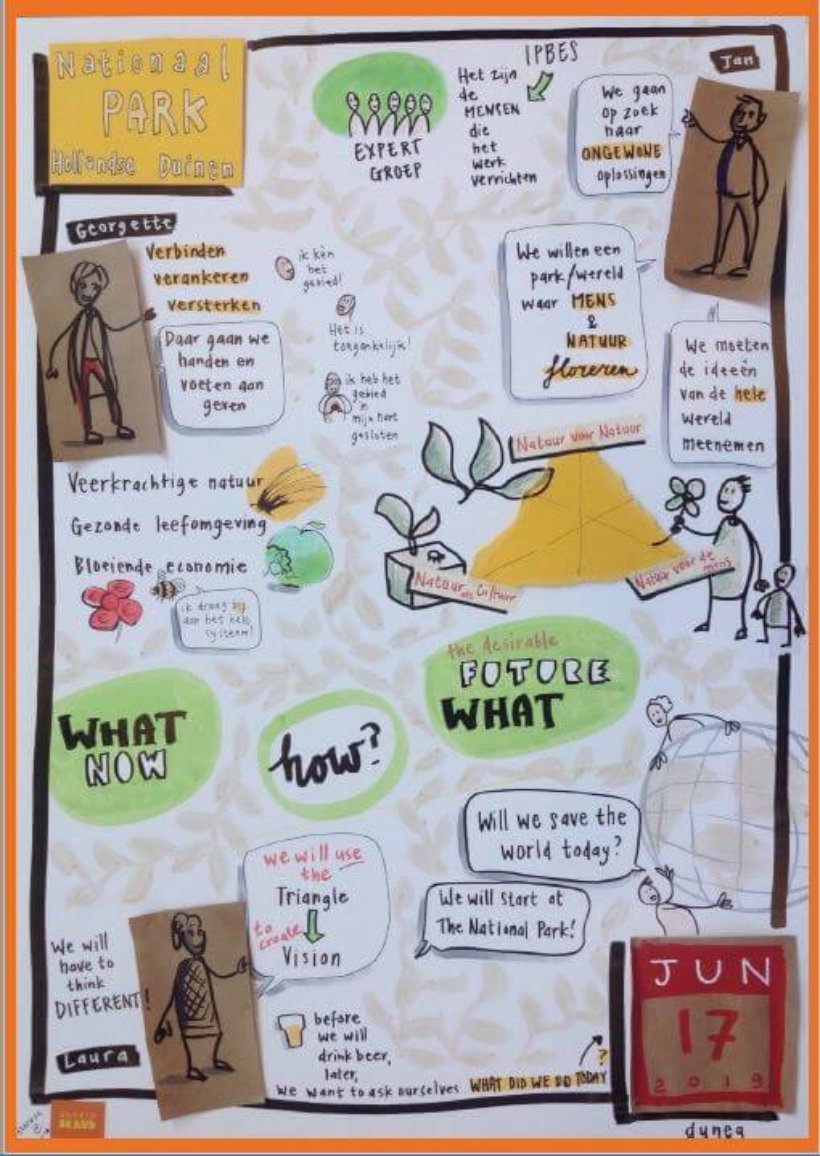 Nationaal
PARK
Hollandse Duinen
IPBES
EXPERT
GROEP
Het zijn
de
MENSEN
die
het
werk
verrichten
Jan
We gaan
op zoek
naar
ONGEWONE
oplossingen
Georgette
Verbinden
verankeren
versterken
Daar gaan we
handen en
voeten aan
geven
ik kèn
het
gebied!
Het is
toegankelijk!
ik heb het
gebied
in
mijn hart
gesloten
We willen een
park/wereld
waar MENS
&
NATUUR
floreren
We moeten
de ideeën
van de hele
wereld
meenemen
Veerkrachtige natuur
Gezonde leefomgeving
Bloeiende economie
ik draag bij
aan het hele
systeem!
Natuur voor Natuur
Natuur als Cultuur
Natuur voor de
mens
WHAT
NOW
how?
the desirable
FUTURE
WHAT
Will we save the
world today?
We will start at
The National Park!
we will use
the
Triangle
to
create
Vision
We will
have to
think
DIFFERENT!
Laura
before
we will
drink beer,
later,
we want to ask ourselves WHAT DID WE DO TODAY
?
JUN
17
2019
dunea
BRAVO